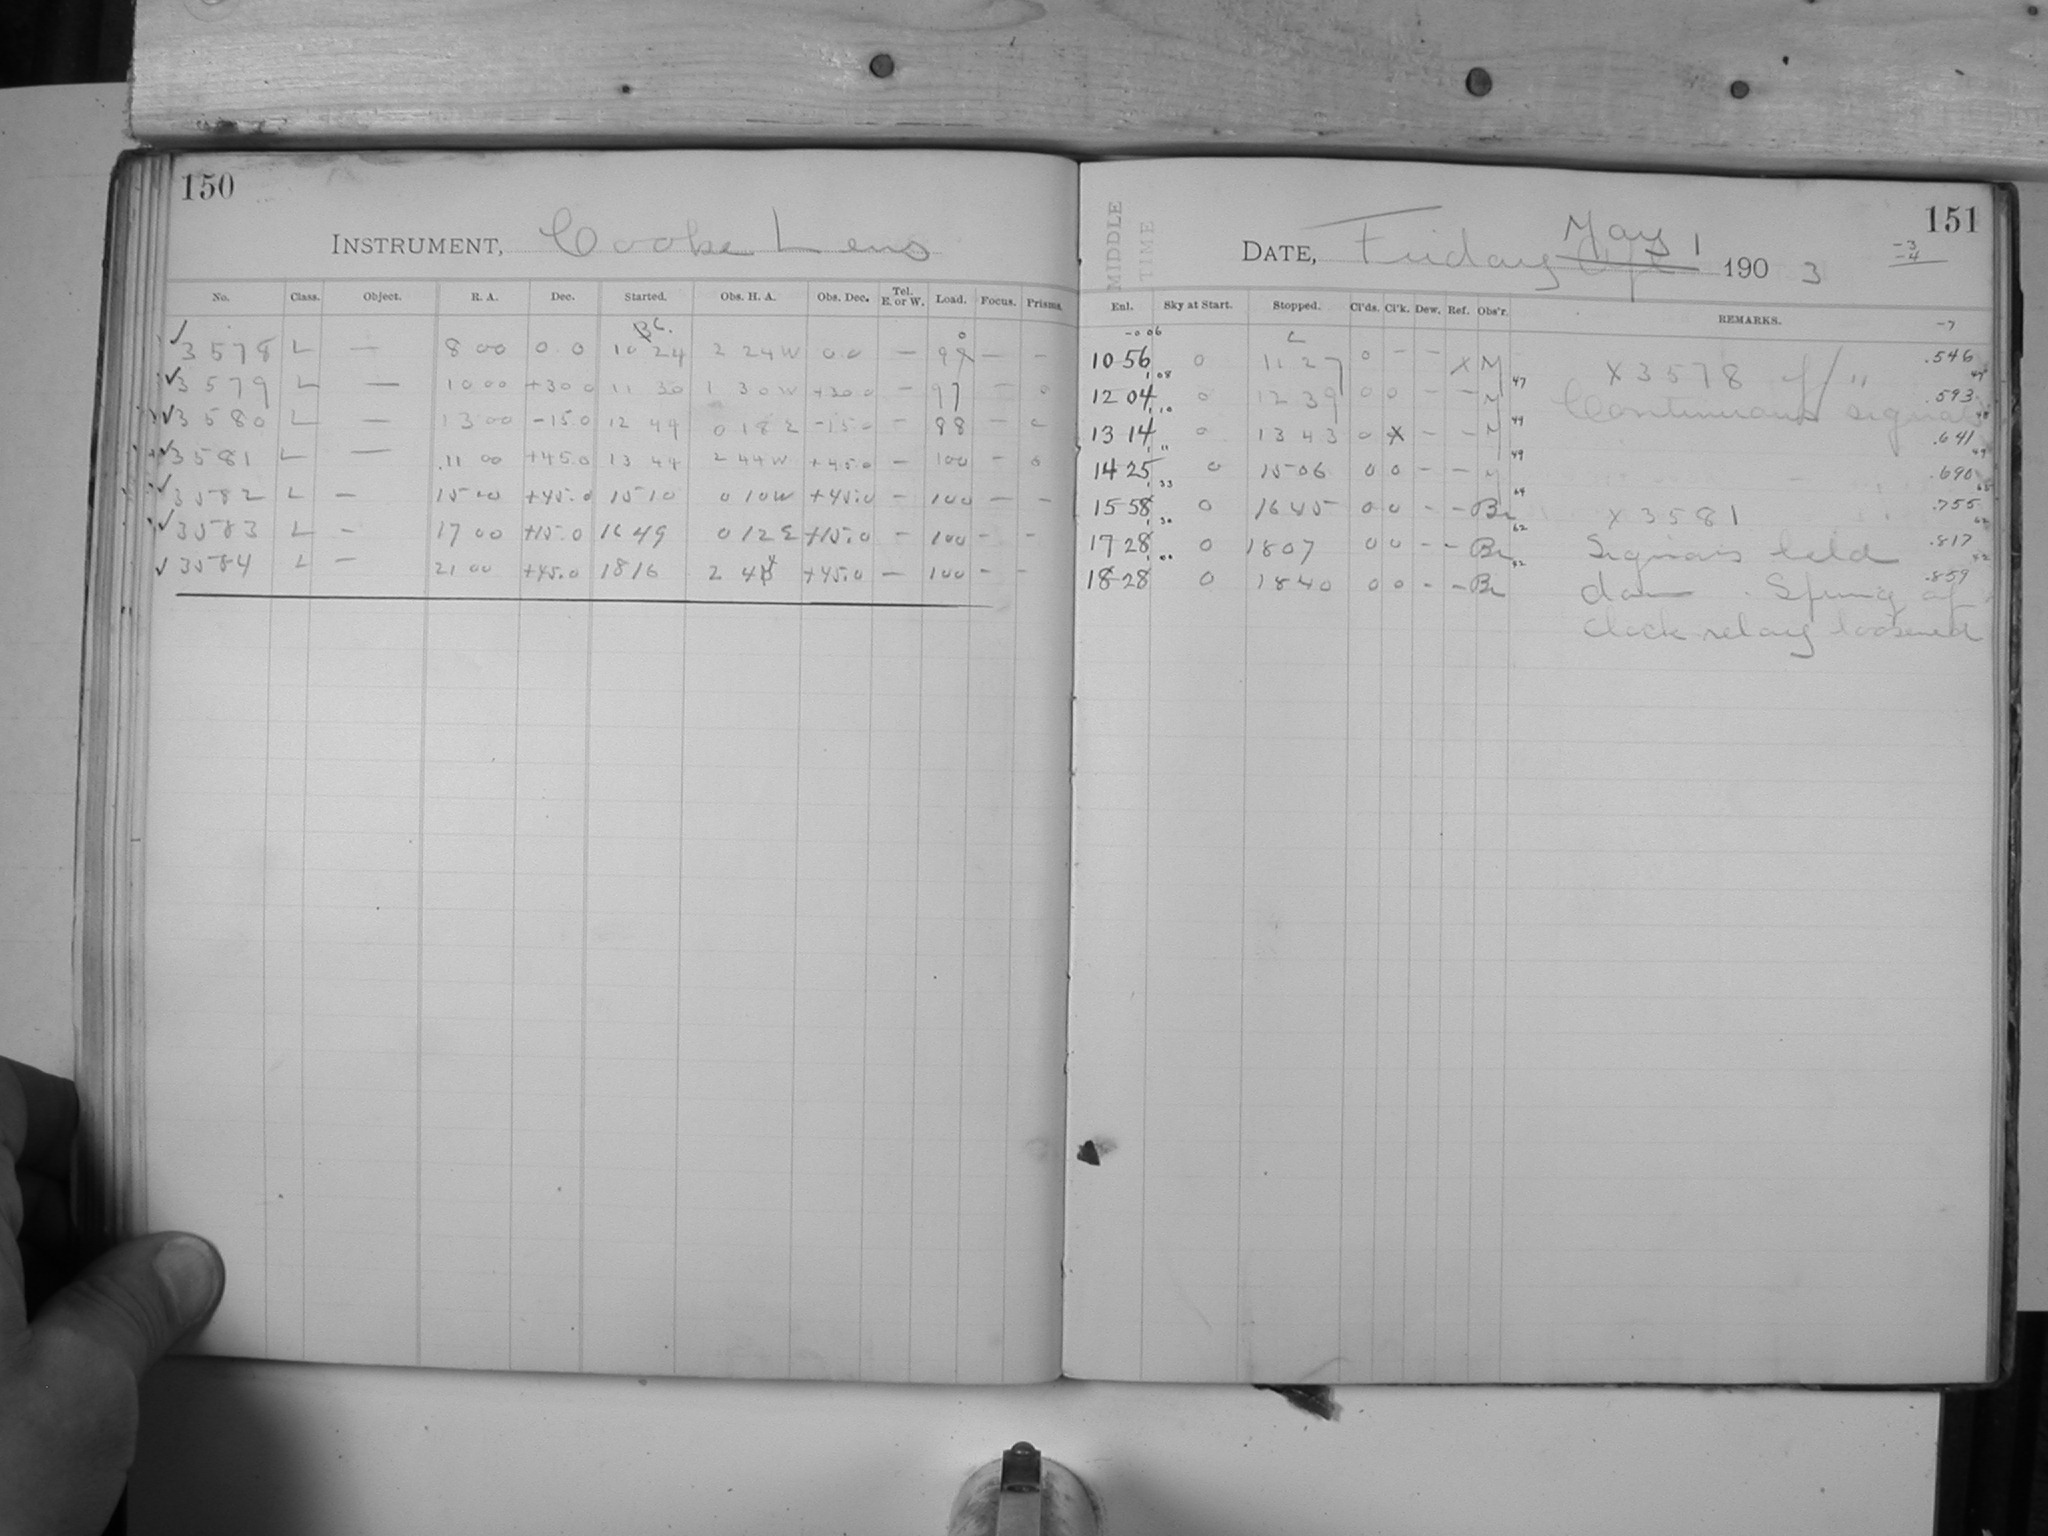 150
INSTRUMENT, Cooke Lens
No. Class. Object. R. A. Dec. Started. Obs. H. A. Obs. Dec. Tel. E. or W. Load. Focus. Prisms.
✓ 3578 L — 8 00 0.0 10 24 2 24 W 0.0 — — —
✓ 3579 L — 10 00 +30.0 11 30 1 30 W +30.0 — 97 — 0
✓ 3580 L — 13 00 -15.0 12 44 0 18 E -15.0 — 98 —
✓ 3581 L — 11 00 +45.0 13 44 2 44 W +45.0 — 100 — 0
✓ 3582 L — 15 00 +45.0 15 10 0 10 W +45.0 — 100 — —
✓ 3583 L — 17 00 +15.0 16 49 0 12 E +15.0 — 100 — —
✓ 3584 L — 21 00 +45.0 18 16 2 44 +45.0 — 100 — —
151
MIDDLE TIME
May 1
DATE, Friday 1903
-3
-4
Enl. Sky at Start. Stopped. Cl'ds. Cl'k. Dew. Ref. Obs'r. REMARKS.
-0 06
-7
10 56 0 11 27 0 — — X M X 3578 .546
1 08 47 47
12 04 0 12 39 0 0 — — M Continuous signals .593
1 10
13 14 0 13 43 0 X — — M .641
1 11 49 49
14 25 0 15 06 0 0 — — M .690
1 33
15 58 0 16 45 0 0 — — Br X 3581 .755
1 30 62 62
17 28 0 18 07 0 0 — — Br Signals held .817
1 00 42 42
18 28 0 18 40 0 0 — — Br down. Spring of .859
clock relay loosened